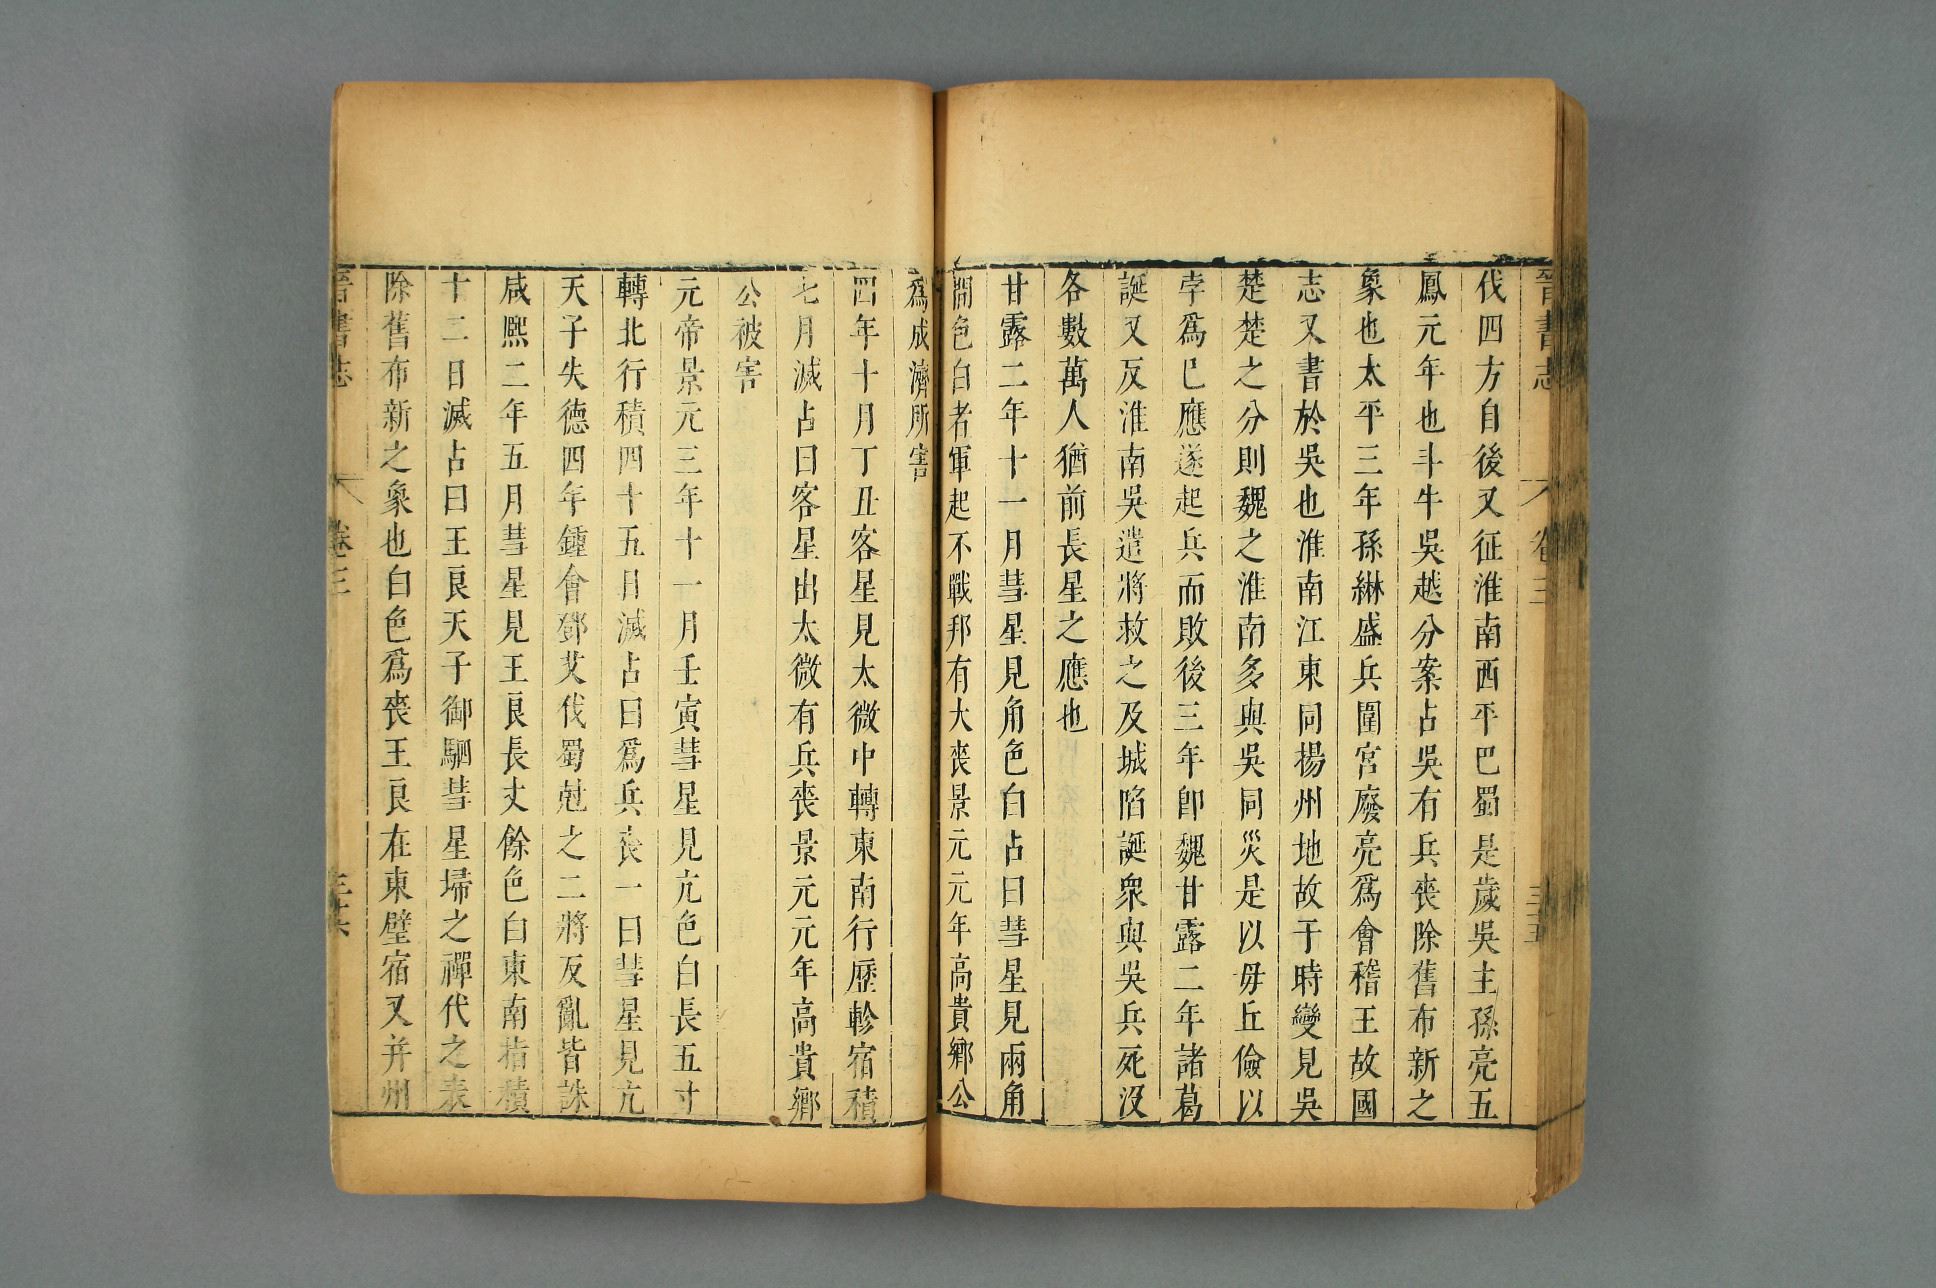 晉書志 卷三 三五
伐四方自後又征淮南西平巴蜀是歲吳主孫亮五
鳳元年也斗牛吳越分案占吳有兵喪除舊布新之
象也太平三年孫綝盛兵圍宮廢亮爲會稽王故國
志又書於吳也淮南江東同揚州地故于時變見吳
楚楚之分則魏之淮南多與吳同災是以毋丘儉以
孛爲巳應遂起兵而敗後三年卽魏甘露二年諸葛
誕又反淮南吳遣將救之及城陷誕衆與吳兵死沒
各數萬人猶前長星之應也
甘露二年十一月彗星見角色白占曰彗星見兩角
間色白者軍起不戰邦有大喪景元元年高貴鄉公
爲成濟所害
四年十月丁丑客星見太微中轉東南行歷軫宿積
七月滅占曰客星出太微有兵喪景元元年高貴鄉
公被害
元帝景元三年十一月壬寅彗星見亢色白長五寸
轉北行積四十五日滅占曰爲兵喪一曰彗星見亢
天子失德四年鍾會鄧艾伐蜀尅之二將反亂皆誅
咸熙二年五月彗星見王良長丈餘色白東南指積
十二日滅占曰王良天子御駟彗星埽之禪代之表
除舊布新之象也白色爲喪王良在東壁宿又并州
晉書志 卷三 三六